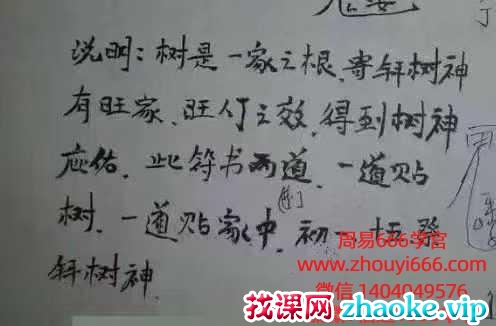 说明：树是一家之根、寄轩树神
有旺家、旺人丁之效，得到树神
应佑。此符书两道，一道贴
树，一道贴家中，初一十五祭
轩树神
周易666学宫
www.zhouyi666.com
微信 1404049576
找课网zhaoke.vip